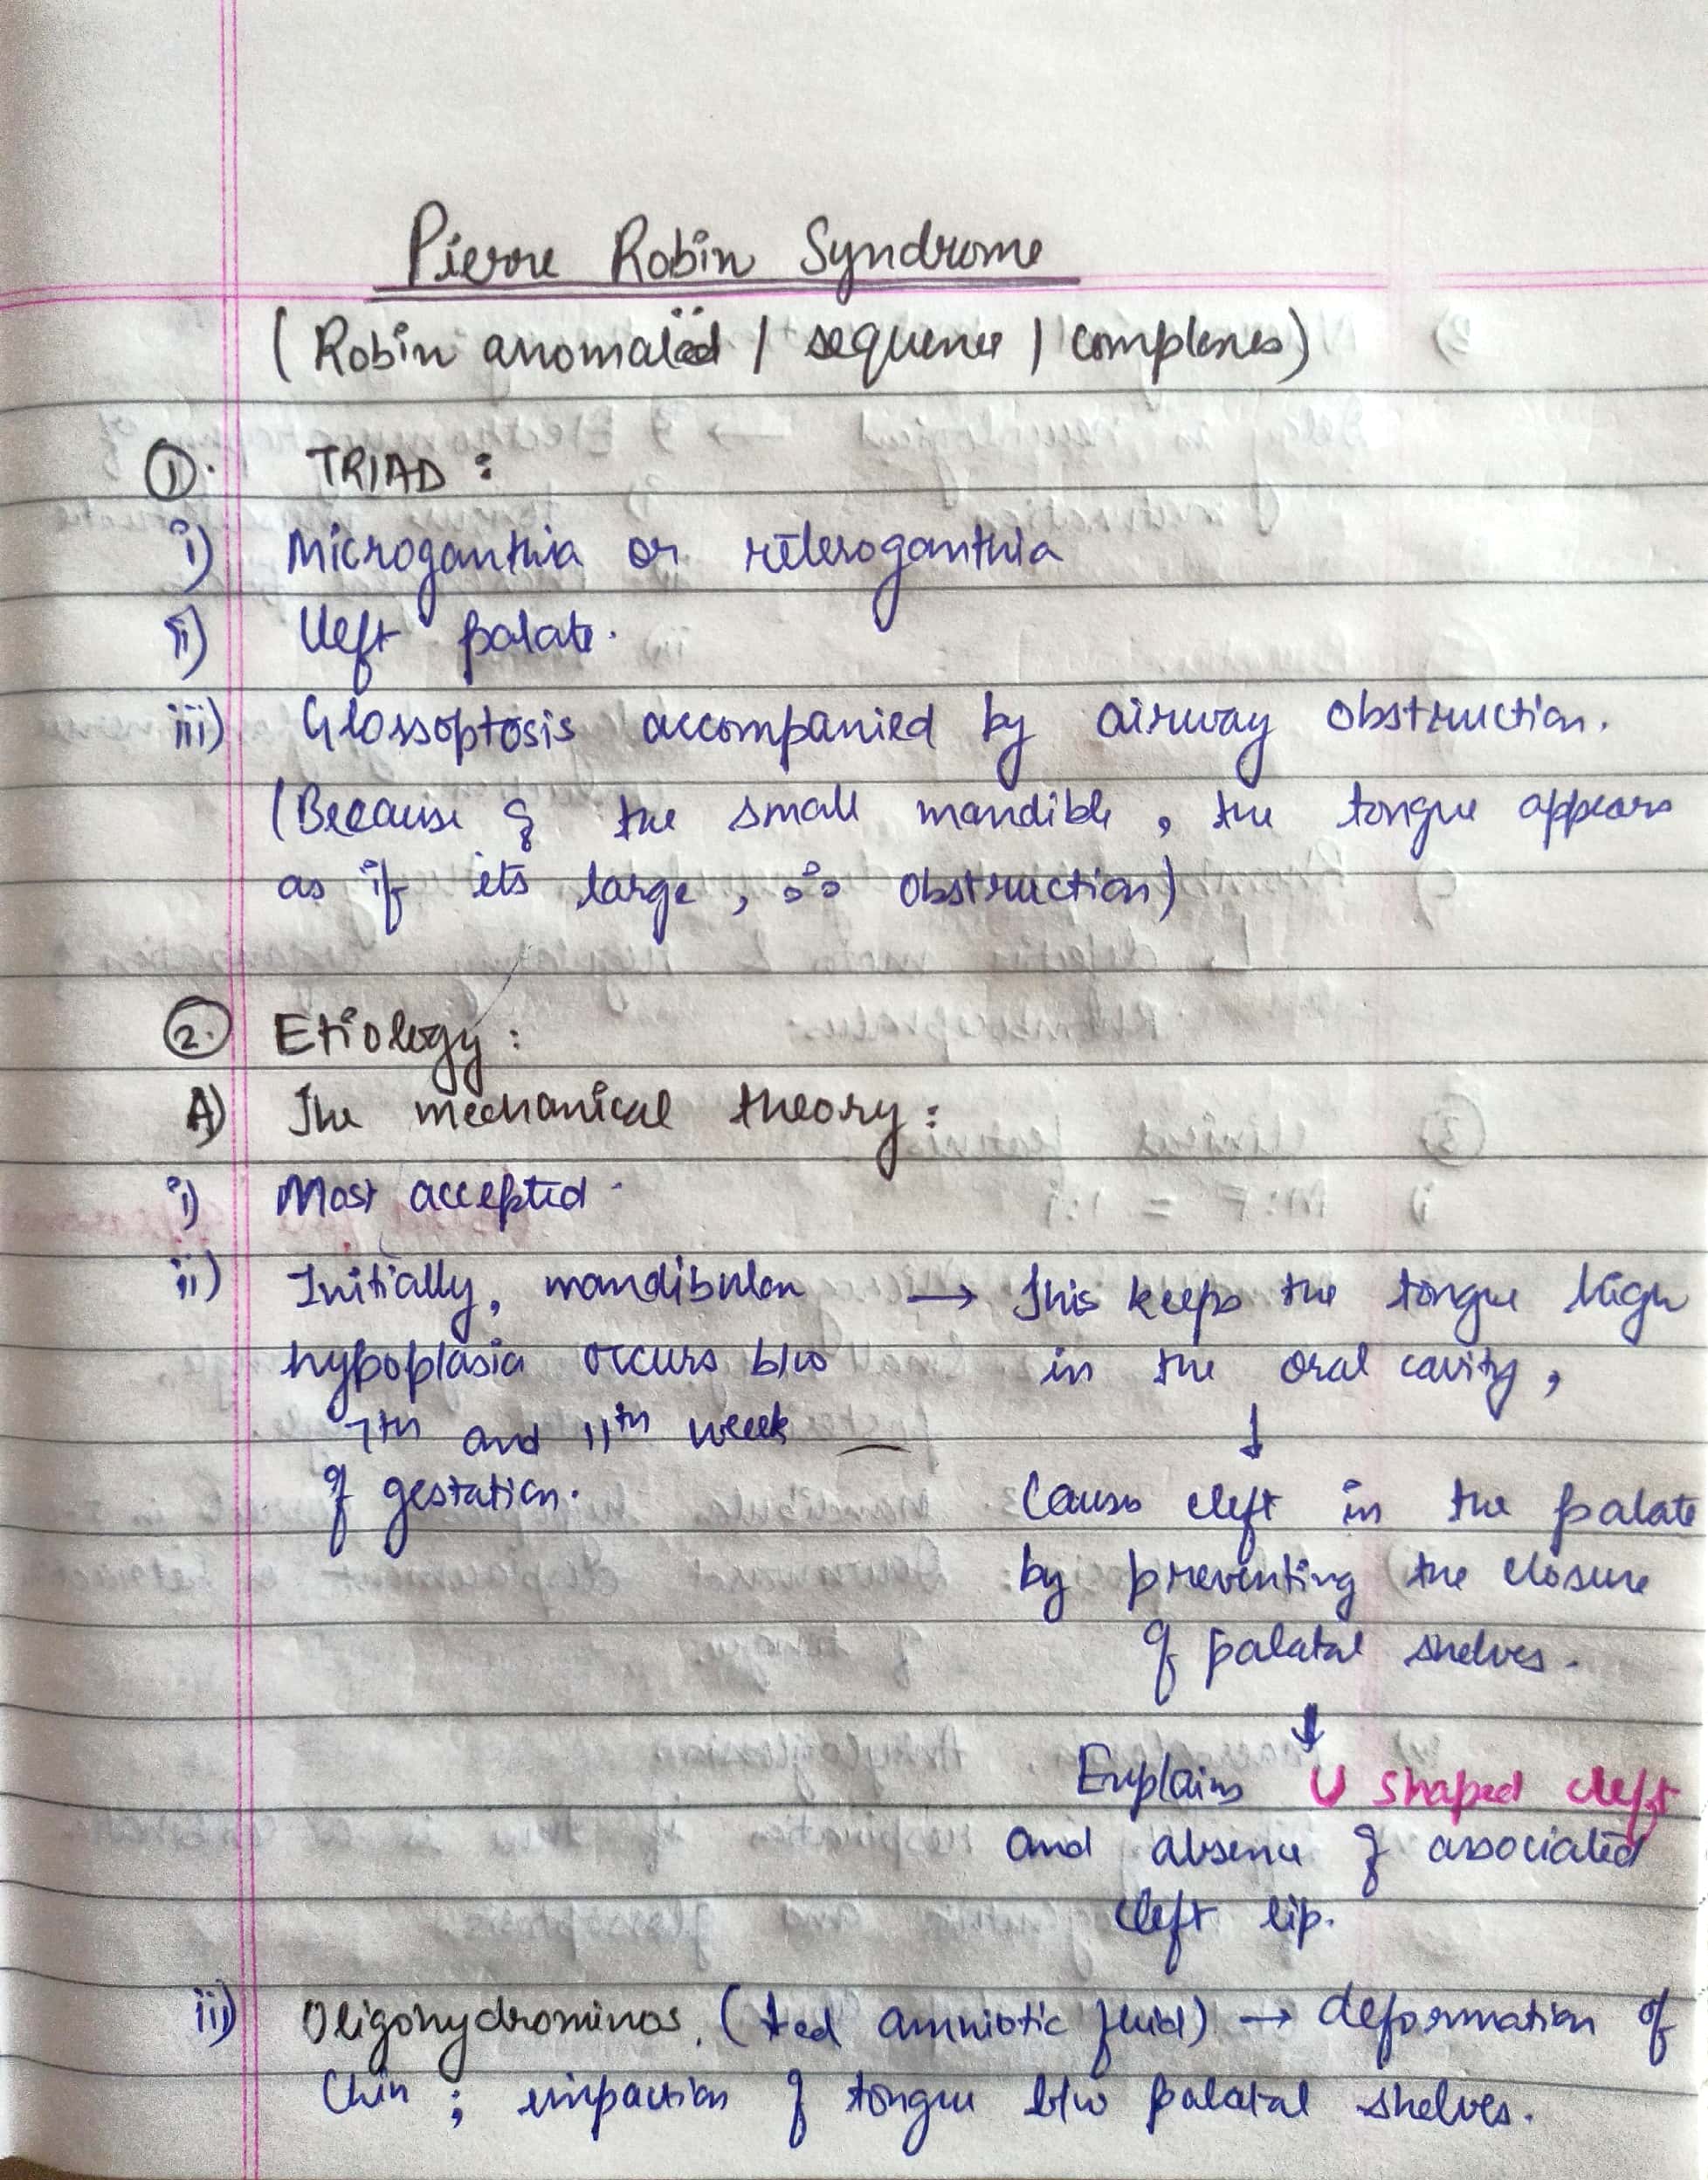 Pierre Robin Syndrome
(Robin anomalad / sequence / complexes)
①. TRIAD :
i) Microganthia or reteroganthia
ii) Cleft palate.
iii) Glossoptosis accompanied by airway obstruction.
(Because of the small mandible, the tongue appears
as if its large, ∴ obstruction)
②. Etiology :
A) The mechanical theory :
i) Most accepted.
ii) Initially, mandibular
hypoplasia occurs b/w
7th and 11th week
of gestation.
→ This keeps the tongue high
in the oral cavity,
↓
Causes cleft in the palate
by preventing the closure
of palatal shelves.
↓
Explains U shaped cleft
and absence of associated
cleft lip.
iii) Oligohydrominos. (↓ed amniotic fluid) → deformation of
Chin ; impaction of tongue b/w palatal shelves.